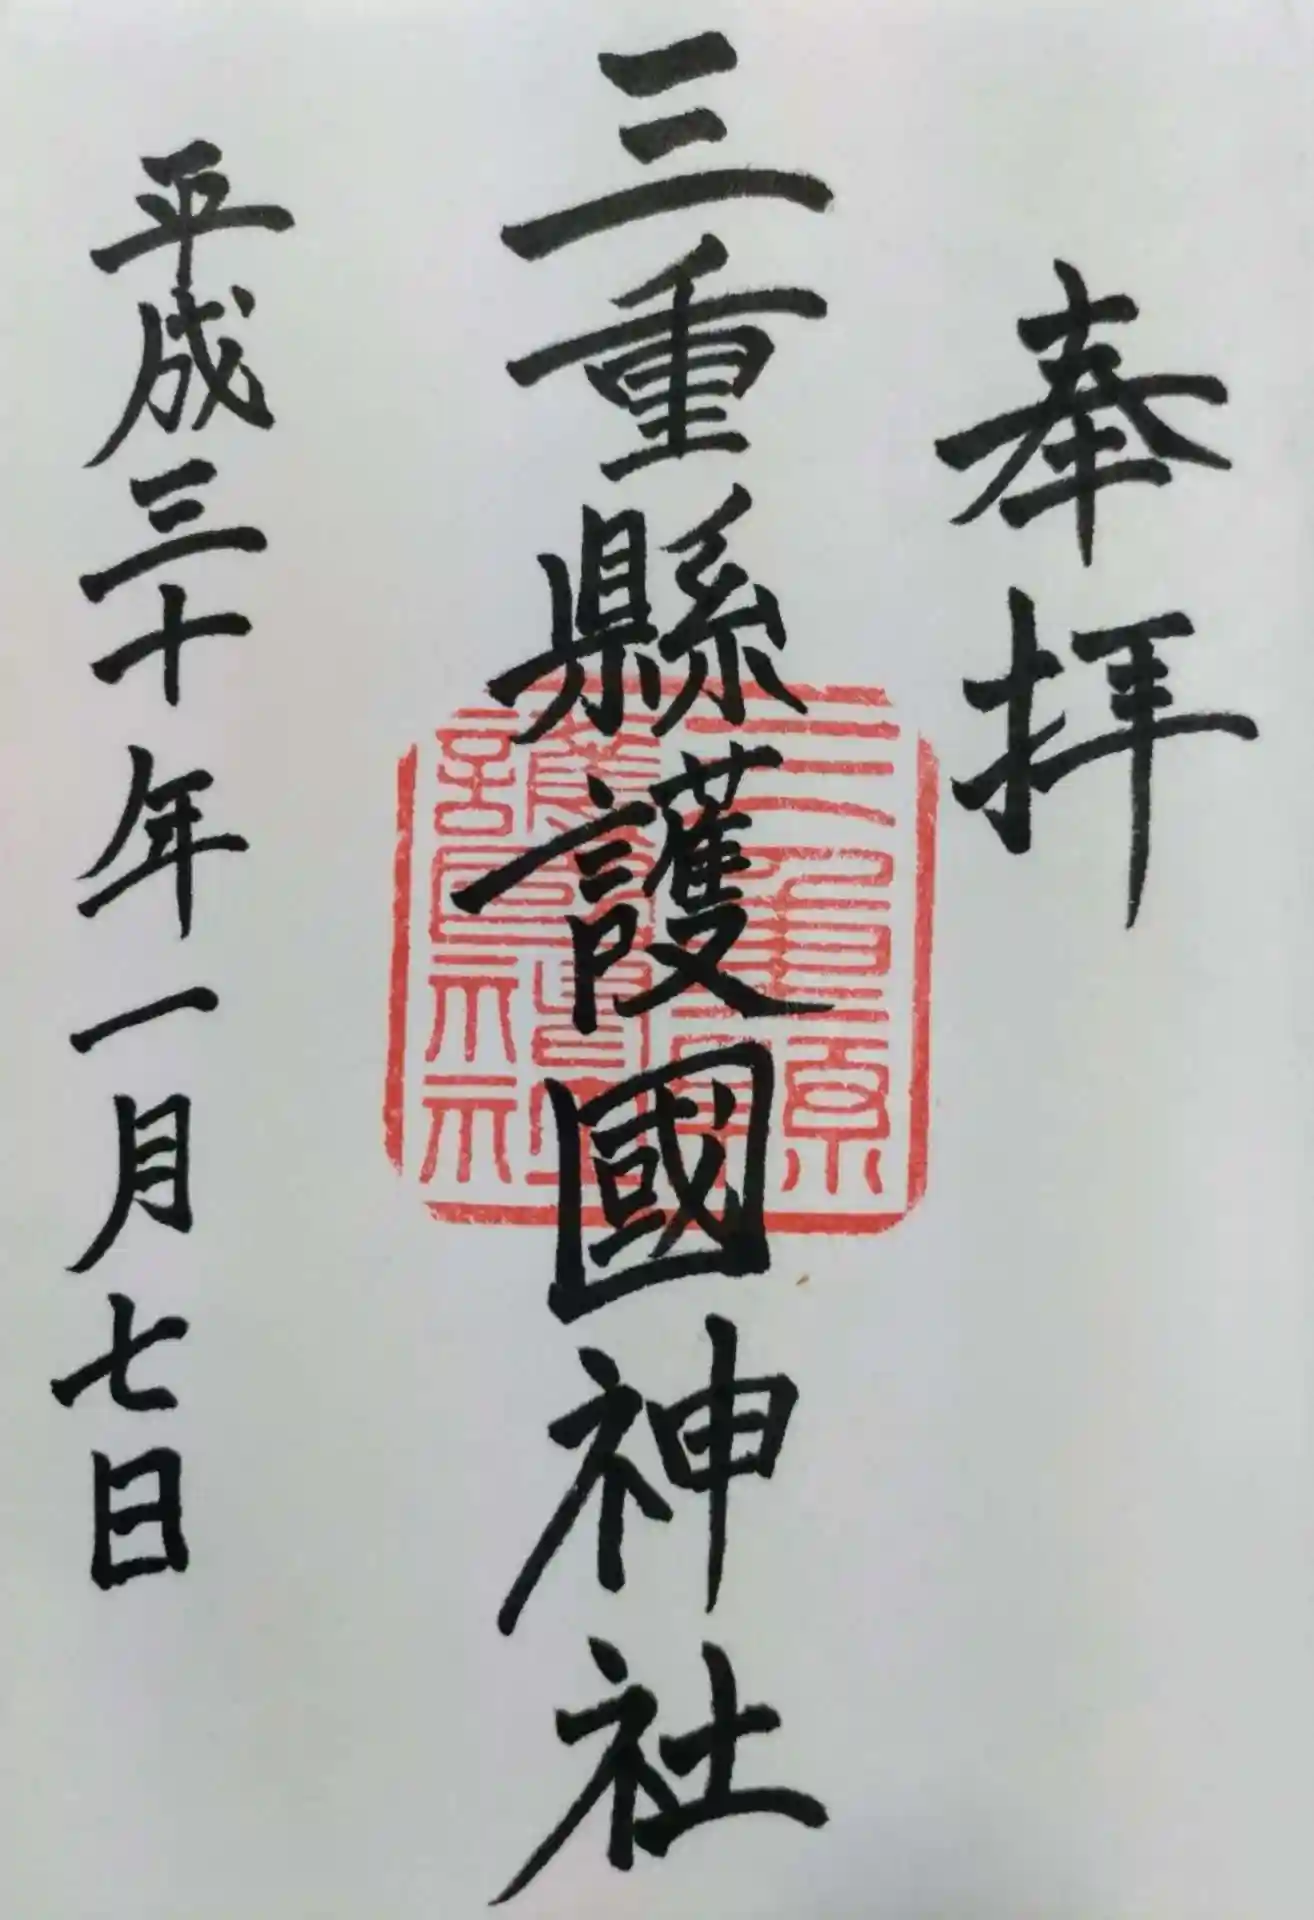 奉拝
三重縣護國神社
平成三十年一月七日
三重縣護國神社